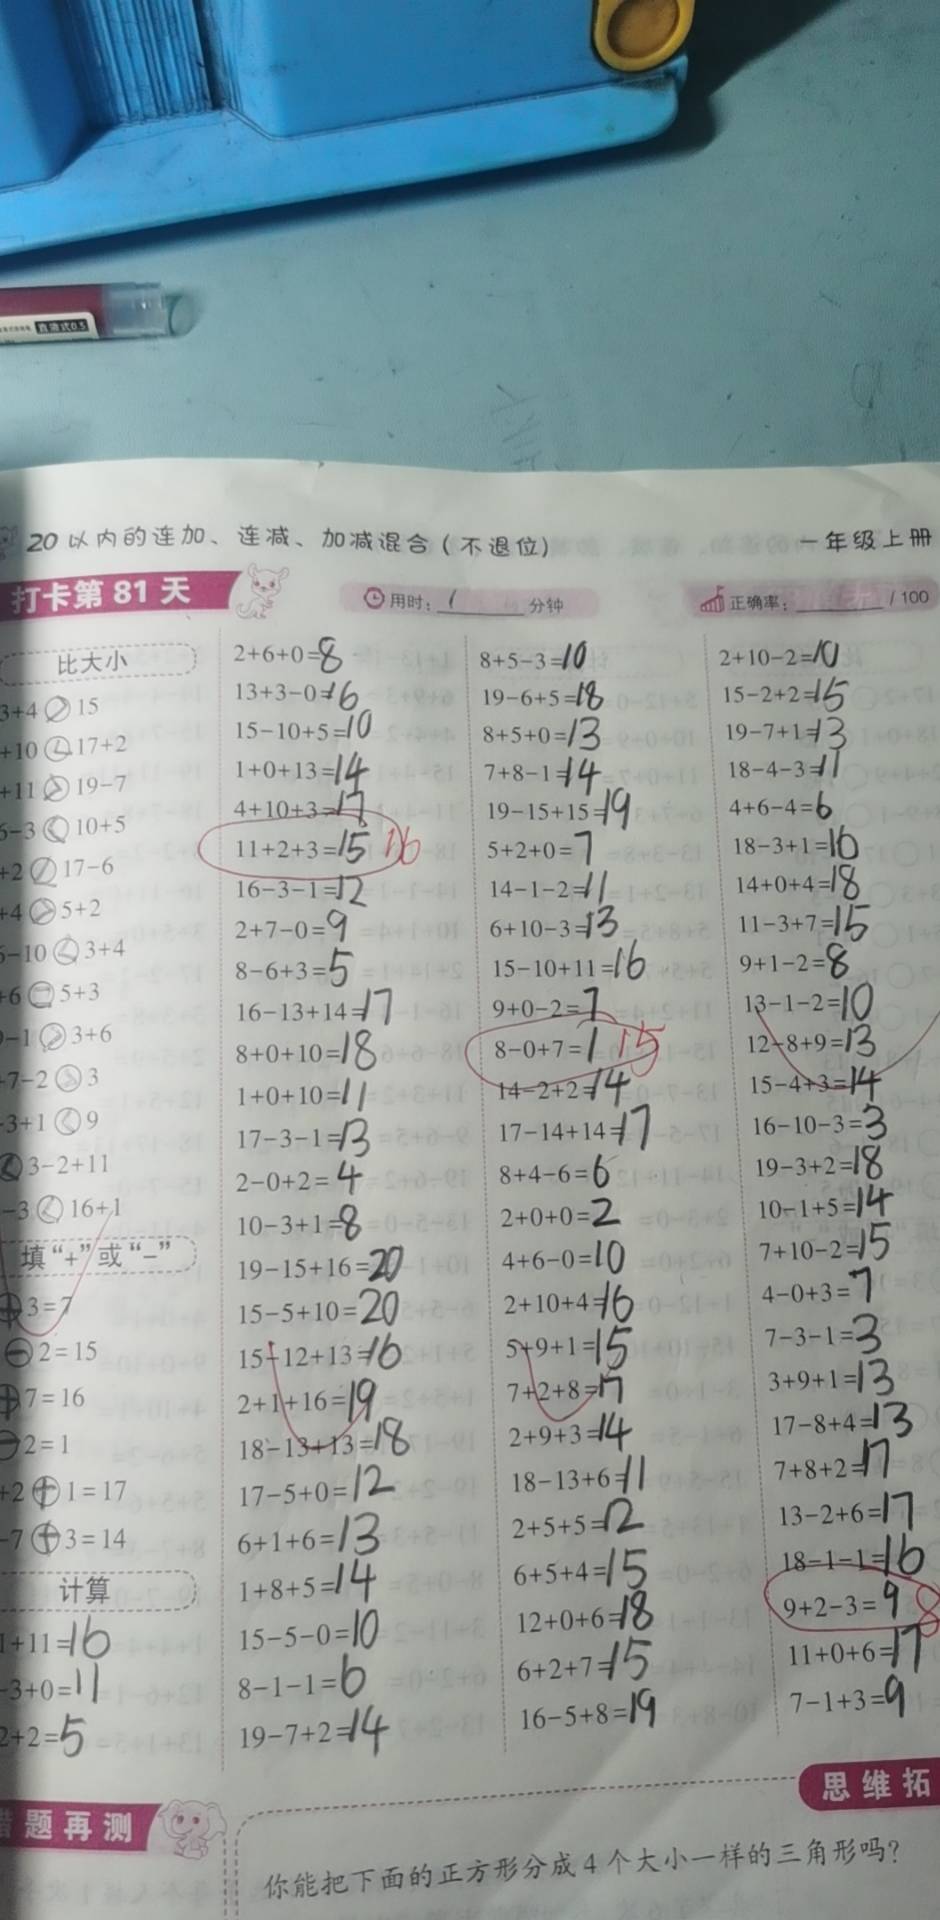 直液式0.5
20以内的连加、连减、加减混合(不退位)
一年级上册
打卡第81天
用时: 1 分钟
正确率: /100
比大小
3+4 > 15
+10 < 17+2
+11 > 19-7
-3 < 10+5
+2 17-6
+4 > 5+2
-10 < 3+4
+6 = 5+3
-1 > 3+6
+7-2 > 3
-3+1 < 9
< 3-2+11
-3 < 16+1
填“+”或“-”
+ 3=7
- 2=15
+ 7=16
- 2=1
+2 + 1=17
-7 + 3=14
计算
1+11=16
-3+0=11
2+2=5
2+6+0=8
13+3-0=16
15-10+5=10
1+0+13=14
4+10+3=17
11+2+3=15 16
16-3-1=12
2+7-0=9
8-6+3=5
16-13+14=17
8+0+10=18
1+0+10=11
17-3-1=13
2-0+2=4
10-3+1=8
19-15+16=20
15-5+10=20
15-12+13=16
2+1+16=19
18-13+13=18
17-5+0=12
6+1+6=13
1+8+5=14
15-5-0=10
8-1-1=6
19-7+2=14
8+5-3=10
19-6+5=18
8+5+0=13
7+8-1=14
19-15+15=19
5+2+0=7
14-1-2=11
6+10-3=13
15-10+11=16
9+0-2=7
8-0+7=1 15
14-2+2=14
17-14+14=17
8+4-6=6
2+0+0=2
4+6-0=10
2+10+4=16
5+9+1=15
7+2+8=17
2+9+3=14
18-13+6=11
2+5+5=12
6+5+4=15
12+0+6=18
6+2+7=15
16-5+8=19
2+10-2=10
15-2+2=15
19-7+1=13
18-4-3=11
4+6-4=6
18-3+1=16
14+0+4=18
11-3+7=15
9+1-2=8
13-1-2=10
12-8+9=13
15-4+3=14
16-10-3=3
19-3+2=18
10-1+5=14
7+10-2=15
4-0+3=7
7-3-1=3
3+9+1=13
17-8+4=13
7+8+2=17
13-2+6=17
18-1-1=16
9+2-3=9 8
11+0+6=17
7-1+3=9
题再测
思维拓
你能把下面的正方形分成4个大小一样的三角形吗?